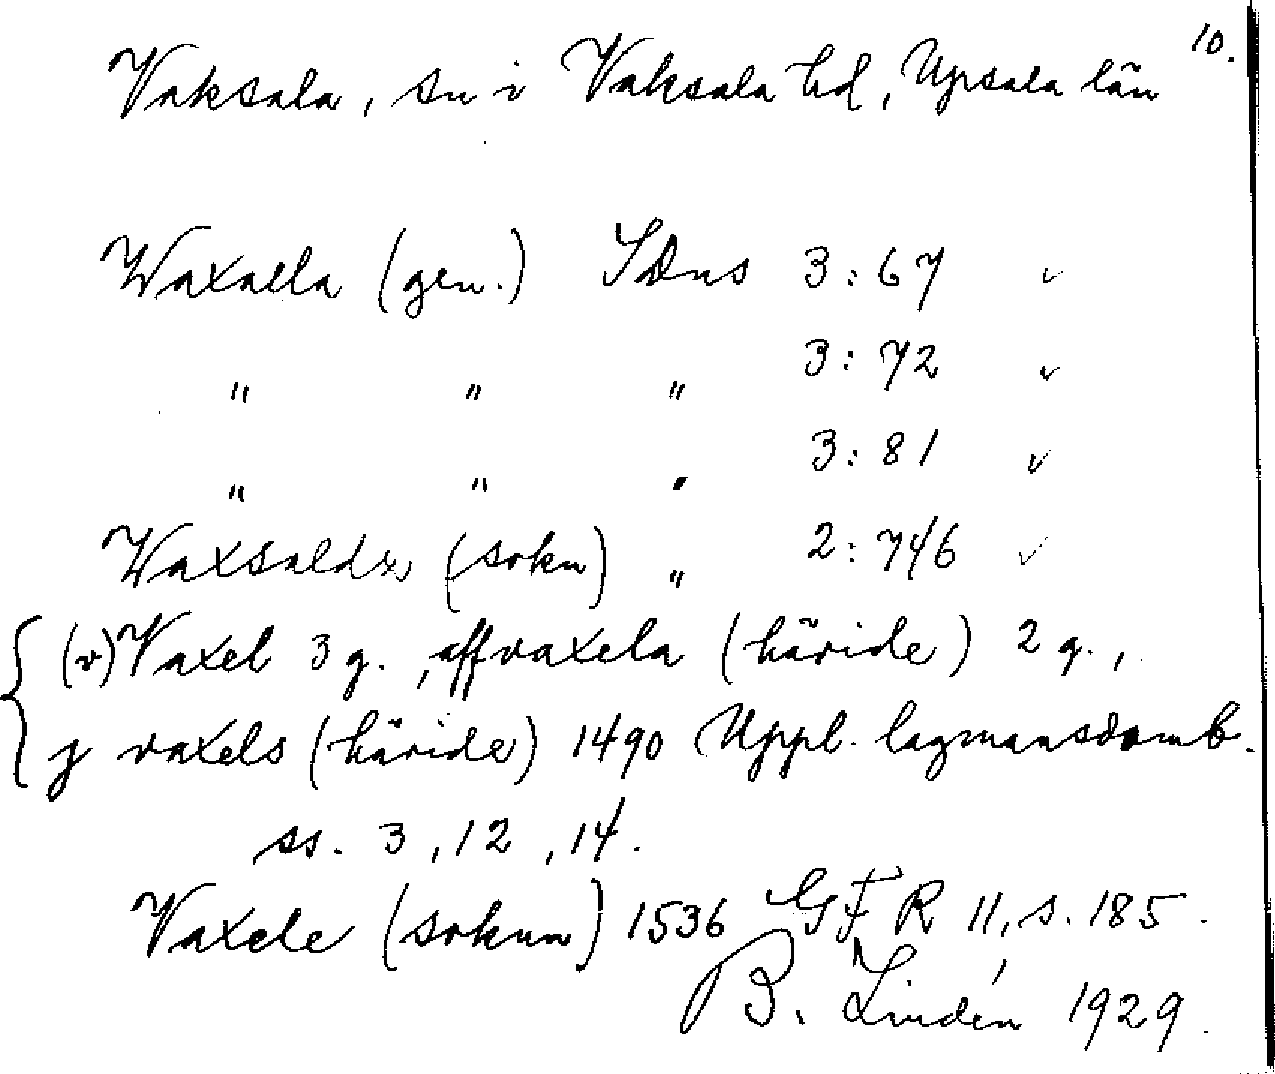 10.
Vaksala, sn i Vaksala hd, Upsala län
Waxalla (gen.) SDns 3:67 ✓
" " " 3:72 ✓
" " " 3:81 ✓
(sokn) " 2:746 ✓
(v) Vaxel 3 g., aff vaxela (häride) 2 g.,
j vaxels (häride) 1490 Uppl. lagmansdomb.
ss. 3, 12, 14.
Vaxele (soknn) 1536 GFR 11, s. 185.
B. Lindén 1929.